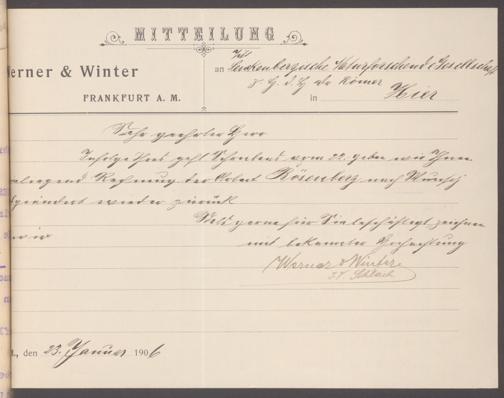 MITTEILUNG
Werner & Winter
FRANKFURT A. M.
an Senckenbergische Naturforschende Gesellschaft
z. H. d. H. Dr. Römer
in Hier
Sehr geehrter Herr
Infolge Ihres gefl. Schreibens vom 22. geben wir Ihnen
einliegend Rechnung der Arbeit Rösenberg nach Wunsch
geändert wieder zurück
Stets gerne für Sie beschäftigt zeichnen
wir
mit bekannter Hochachtung
Werner & Winter
den 23. Januar 1906